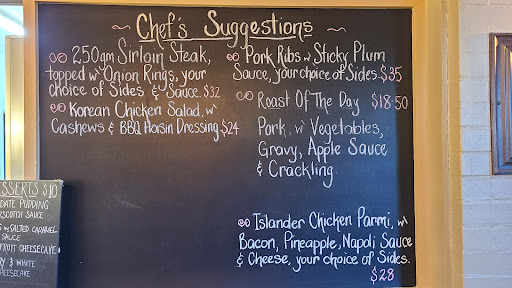 ~ Chef's Suggestions ~
250gm Sirloin Steak,
topped w/ Onion Rings, your
choice of Sides & Sauce. $32
Korean Chicken Salad, w/
Cashews & BBQ Hoisin Dressing $24
Pork Ribs w/ Sticky Plum
Sauce, your choice of Sides. $35
Roast Of The Day $18.50
Pork, w/ Vegetables,
Gravy, Apple Sauce
& Crackling.
Islander Chicken Parmi, w/
Bacon, Pineapple, Napoli Sauce
& Cheese, your choice of Sides.
$28
ESSERTS $10
DATE PUDDING
RSCOTCH SAUCE
W/ SALTED CARAMEL
SAUCE
FRUIT CHEESECAKE
& WHITE
HEESECAKE